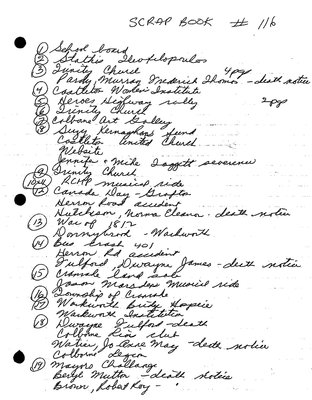 SCRAP BOOK # 116
1 School board
2 Stathis Theofilopoulos
3 Trinity Church 4pgs
Pardy, Murray Frederick Thomas - death notice
4 Castleton Women's Institute
5 Heroes Highway rally 2pgs
6 Trinity Church
7 Colborne Art Gallery
8 Suzy Kernaghans fund
Castleton United Church
Website
Jennifer & Mike Doggett
9 Trinity Church
10 RCMP musical ride
12 Canada Day - Grafton
Herron Road accident
Hutchison, Norma Eleanor - death notice
13 War of 1812
Donnybrook - Warkworth
14 Bus crash 401
Herron Rd accident
Fulford Dwayne James - death notice
15 Cramahe land
Jason Marsden Musical ride
16 Township of Cramahe
17 Warkworth Bridge
Warkworth Institution
18 Dwayne Fulford - death
Colborne Lion club
Jo Anne May - death notice
Colborne Legion
19 Mayors Challenge
Beryl Mutton - death notice
Brown, Robert Roy - "